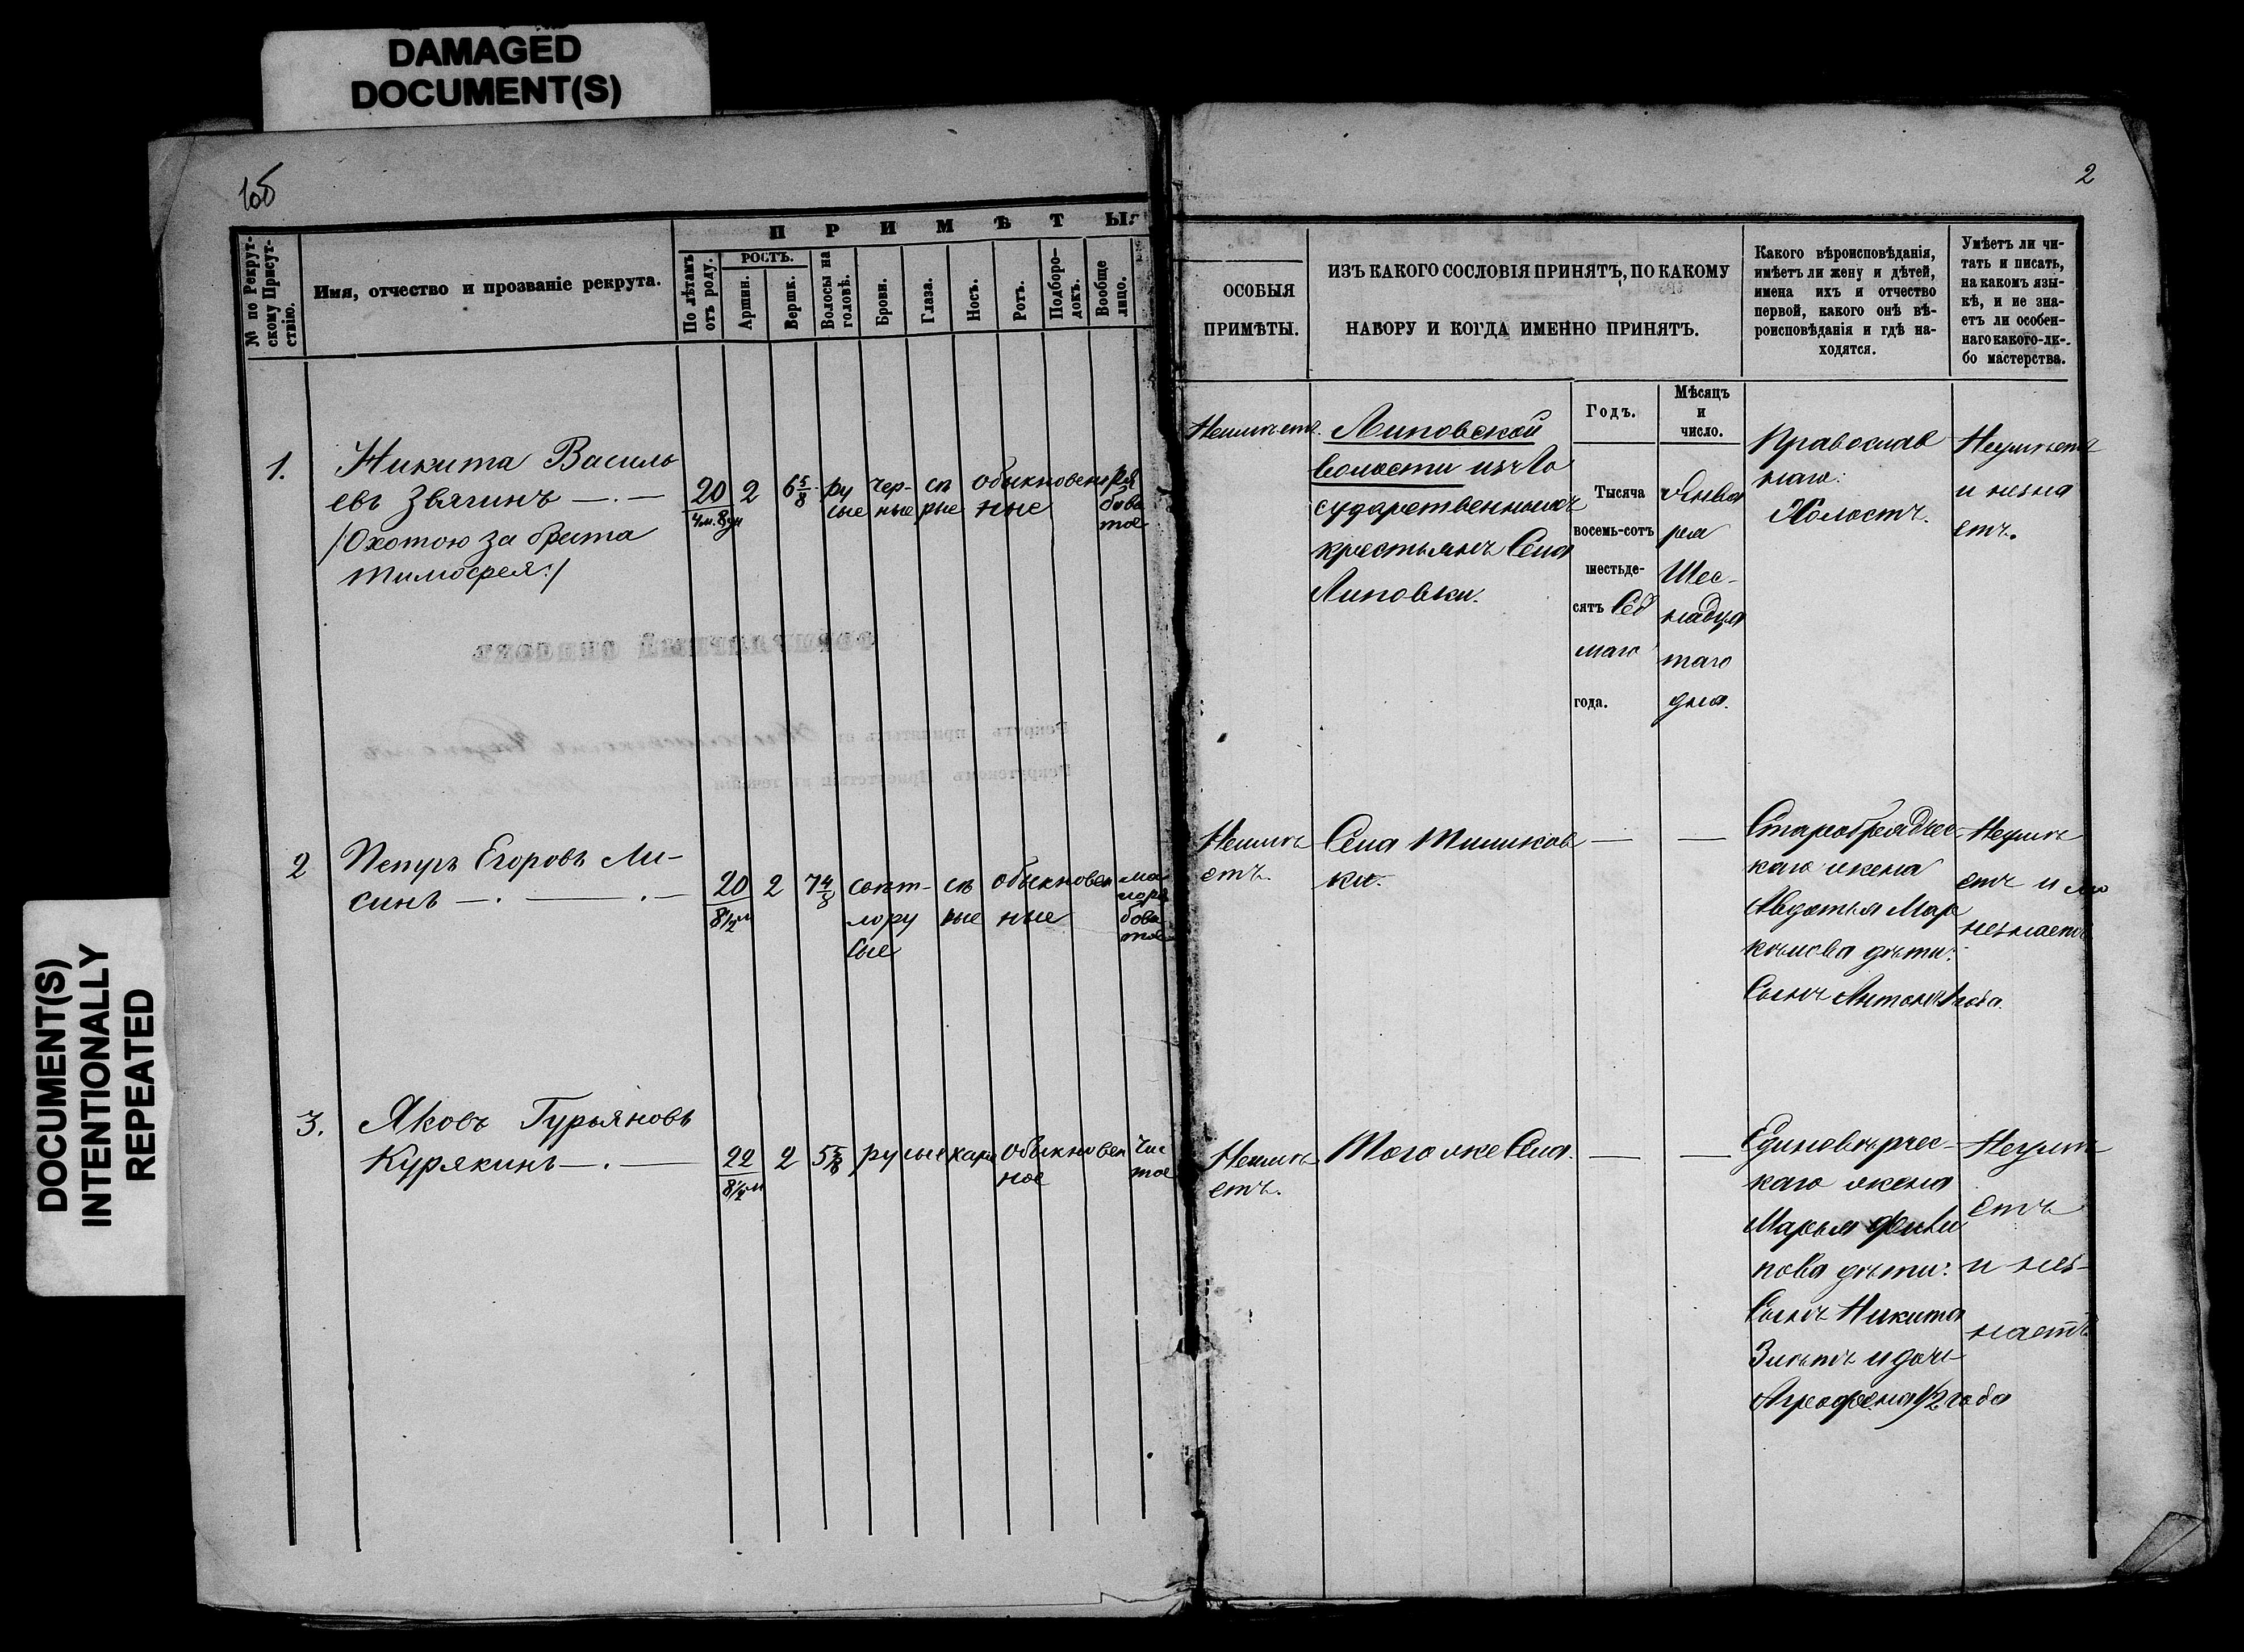 DAMAGED
DOCUMENT(S)
DOCUMENT(S)
INTENTIONALLY
REPEATED
1об
2
№ по Рекрут-
скому Присут-
ствію.
Имя, отчество и прозваніе рекрута.
ПРИМѢТЫ:
По лѣтамъ
отъ роду.
РОСТЪ.
Аршин.
Вершк.
Волосы на
головѣ.
Брови.
Глаза.
Носъ.
Ротъ.
Подборо-
докъ.
Вообще
лицо.
ОСОБЫЯ
ПРИМѢТЫ.
ИЗЪ КАКОГО СОСЛОВІЯ ПРИНЯТЪ, ПО КАКОМУ
НАБОРУ И КОГДА ИМЕННО ПРИНЯТЪ.
Какого вѣроисповѣданія,
имѣетъ ли жену и дѣтей,
имена ихъ и отчество
первой, какого онѣ вѣ-
роисповѣданія и гдѣ на-
ходятся.
Умѣетъ ли чи-
тать и писать,
на какомъ язы-
кѣ, и не зна-
етъ ли особен-
наго какого-ли-
бо мастерства.
Годъ.
Мѣсяцъ
и
число.
1.
Никита Василь
евъ Звягинъ —.—
/:Охотою за брата
Тимофея:/
20
4м. 8дн
2
6 5/8
ру
сые
чер-
ные
сѣ
рые
обыкновен
ные
ря
бова
тое
Неимѣетъ.
Липовской
волости изъ Го
сударственныхъ
крестьянъ Села
Липовки.
Тысяча
восемь-сотъ
шестьде-
сятъ Сед
маго
года.
Янва
ря
Шес-
надца
таго
дня.
Православ
наго.
Холостъ.
Неумѣетъ
и незна
етъ.
2
Петръ Егоровъ Ли-
синъ —.—.—
20
8½ м
2
7 4/8
свѣт-
лору
сые
сѣ
рые
обыкновен
ные
ма
лоря
бова
тое
Неимѣ
етъ.
Села Тишков
ки.
—
—
Старообрядчес-
каго жена
Авдотья Мар
кѣлова дѣти:
Сынъ Антонъ 1 года
Неумѣ
етъ и
незнаетъ
3.
Яковъ Гурьяновъ
Курякинъ —.—
22
8½ м
2
5 5/8
русые
карие
обыкновен
ное
чис
тое
Неимѣ
етъ.
Того же Села.
—
—
Единовѣрчес-
каго жена
Марья Фили
пова дѣти:
Сынъ Никита
3 лѣтъ и дочь
Аграфена 1/2 года
Неумѣ
етъ
и нез-
наетъ